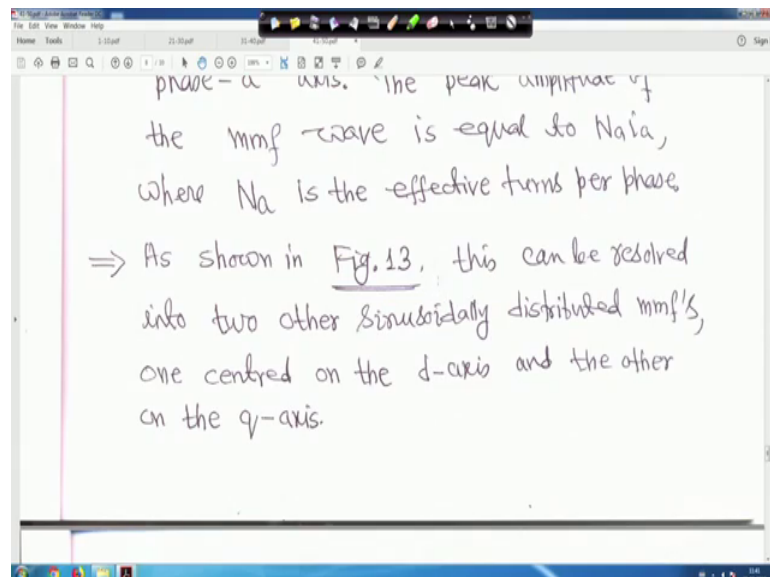 41-50.pdf - Adobe Acrobat Reader DC
File Edit View Window Help
Home Tools 1-10.pdf 21-30.pdf 31-40.pdf 41-50.pdf × Sign
phase-a axis. The peak amplitude of
the mmf wave is equal to Naia,
where Na is the effective turns per phase.
⇒ As shown in Fig. 13, this can be resolved
into two other sinusoidally distributed mmf's,
one centred on the d-axis and the other
on the q-axis.